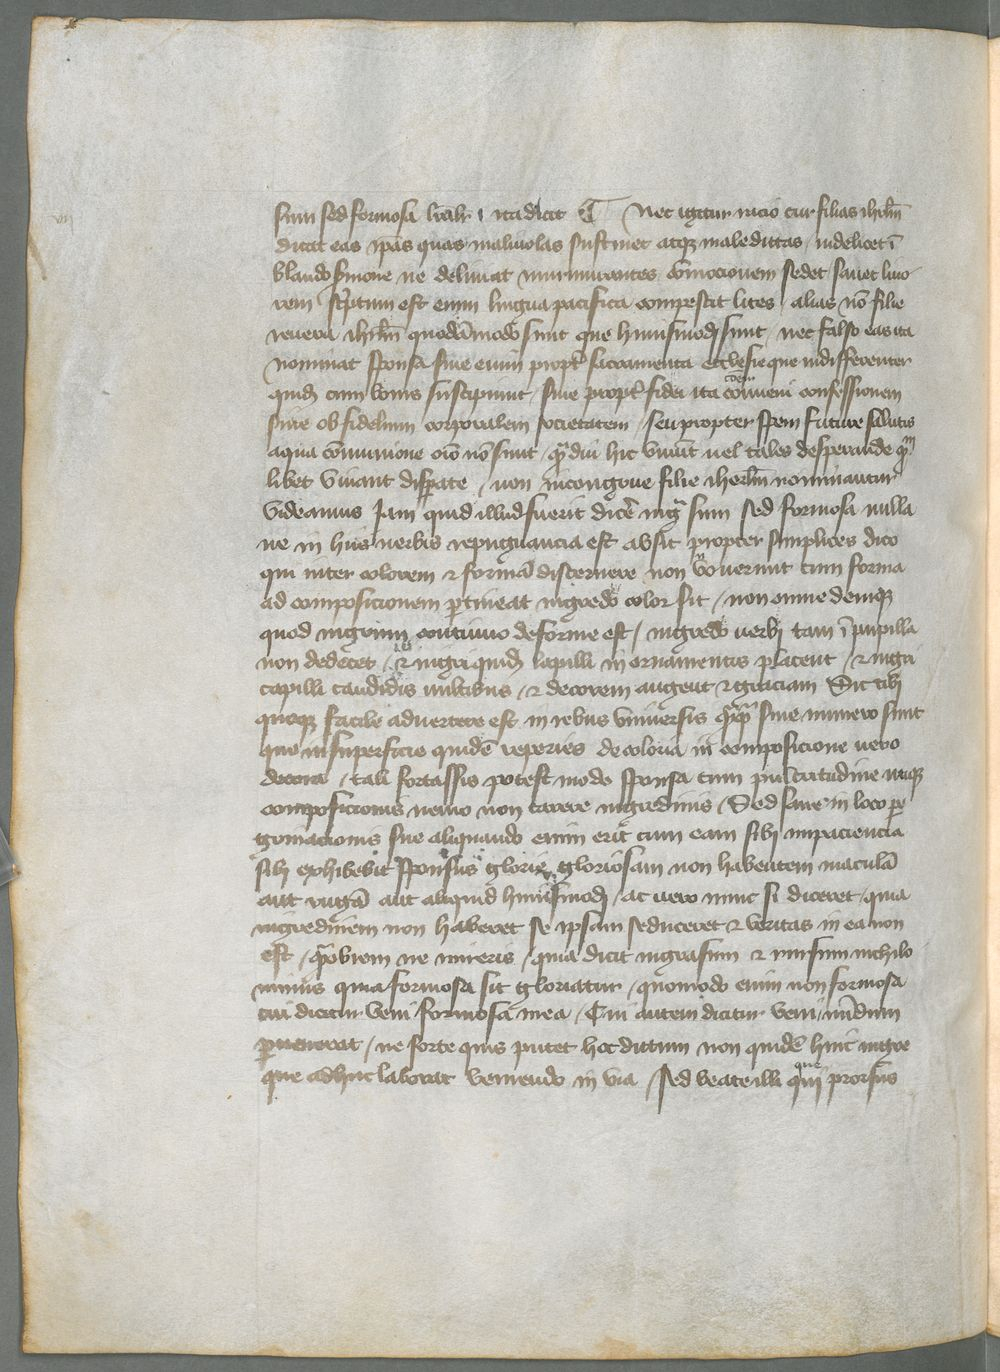 sum sed formosa libr̄ı ita dicit ¶ Nec igitur racio cur filias ihrl̄m
dicat eas ip̄as quas maliuolas sustinet atqꝫ maledictas / uidelicet ī
blando s̄mone ne deliniat murmurantes cōmocionem sedet sanet liuo
rem sc̄ptum est enim lingua pacifica compescit lites / alias nō filie
reuera ihrl̄m quodāmodo sunt que huiusmodi sunt / nec falso eas ita
nominat sponsa siue enim propt̄ sacramenta ecclesie que indifferenter
quidē cum bonis suscipiunt / siue propt̄ fidei ita cōmunem confessionem
siue ob fidelium corporalem societatem / seu propter spem future salutis
aqua cōmunione oīo nō sunt / qr̄diu hic uiuūt uel tales desperande qr̄m
libet uiuant disp̄ate / non incongrue filie iherl̄m nominantur
Videamus Jam quid illud fuerit dicē nigr̄ sum sed formosa nulla
ne in hiis uerbis repugnancia est absit propter simplices dico
qui inter colorem et formā discernere non nouerunt cum forma
ad composicionem p̄tineat nigredo color sit / non omne deniqꝫ
quod nigrum continuo deforme est / nigredo uerbi tam ī pupilla
non dedecet / et nigri quidē lapilli in ornamentis placent / et nigri
capilli candidis uultibus / et decorem augent et graciam Sic tibi
quoqꝫ facile aduertere est in rebus uniuersis qr̄pr̄ sine numero sunt
que in superficie quidē reperies decoloria in composicione uero
decora / tali fortassis potest modo sponsa cum pulcritudine utiqꝫ
composicionis neuo non carere nigredinis / Sed sane in loco pe
grinacionis sue alioquando enim erit cum eam sibi inpaciencia
sibi exhibebit sponsus glorie gloriosam non habentem maculā
aut rugā aut aliquid huiusmodi / ac uero nunc si diceret / quia
nigredinem non haberet se ipsam seduceret et ueritas in ea non
est / qr̄obrem ne mireris / quia dicit nigra sum et rursum nichilo
minus quia formosa sit gloriatur / quomodo enim non formosa
cui dicitur Veni formosa mea / Cui autem dicitur Veni / nūdum
peruenerat / ne forte quis putet hoc dictum non quidē huic nigre
que adhuc laborat ueniendo in uia / sed beate illi que qui prorsus